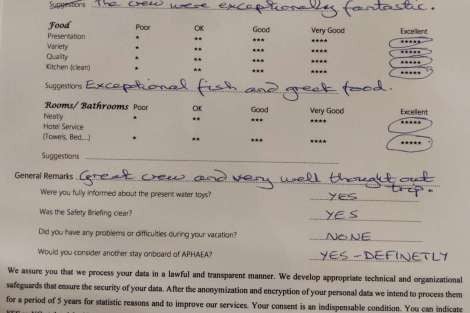 Suggestions The crew were exceptionally fantastic.
Food Poor OK Good Very Good Excellent
Presentation * ** *** **** *****
Variety * ** *** **** *****
Quality * ** *** **** *****
Kitchen (clean) * ** *** **** *****
Suggestions Exceptional fish and greek food.
Rooms/ Bathrooms Poor OK Good Very Good Excellent
Neatly * ** *** **** *****
Hotel Service
(Towels, Bed...) * ** *** **** *****
Suggestions
General Remarks Great crew and very well thought out
trip.
Were you fully informed about the present water toys? YES
Was the Safety Briefing clear? YES
Did you have any problems or difficulties during your vacation? NONE
Would you consider another stay onboard of APHAEA? YES - DEFINETLY
We assure you that we process your data in a lawful and transparent manner. We develop appropriate technical and organizational
safeguards that ensure the security of your data. After the anonymization and encryption of your personal data we intend to process them
for a period of 5 years for statistic reasons and to improve our services. Your consent is an indispensable condition. You can indicate